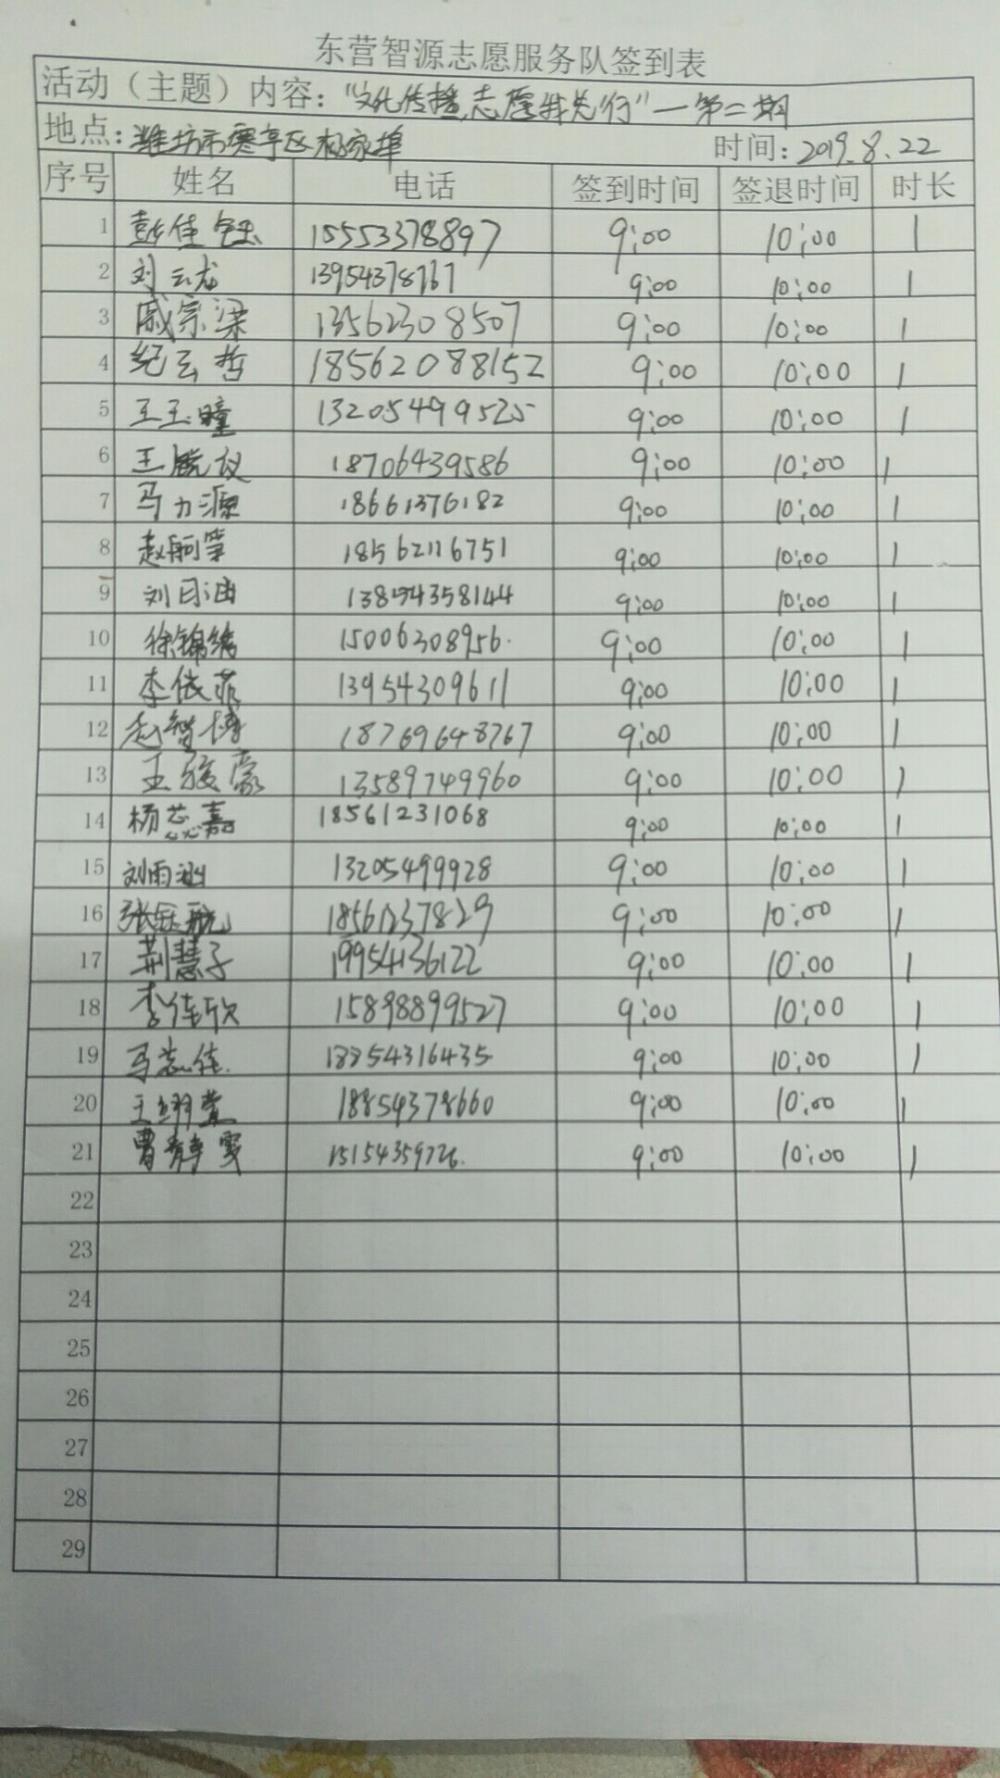 东营智源志愿服务队签到表
活动（主题）内容："文化传播,志愿我先行"—第二期
地点:潍坊市寒亭区杨家埠 时间:2019.8.22
序号 姓名 电话 签到时间 签退时间 时长
1 彭佳钰 15553378897 9:00 10:00 1
2 刘云龙 13954378767 9:00 10:00 1
3 戚宗梁 13562308507 9:00 10:00 1
4 纪云哲 18562088152 9:00 10:00 1
5 王玉瞳 13205499525 9:00 10:00 1
6 王 仪 18706439586 9:00 10:00 1
7 马力源 18661376182 9:00 10:00 1
8 赵 18562116751 9:00 10:00 1
9 刘 涵 9:00 10:00 1
10 徐锦绣 15006308956. 9:00 10:00 1
11 李依菲 13954309611 9:00 10:00 1
12 赵智博 18769648767 9:00 10:00 1
13 王骏豪 13589749960 9:00 10:00 1
14 杨蕊嘉 18561231068 9:00 10:00 1
15 刘雨涵 13205499928 9:00 10:00 1
16 张钰航 18561237829 9:00 10:00 1
17 荆慧子 19954136122 9:00 10:00 1
18 李佳欣 15898899527 9:00 10:00 1
19 马志佳 18854316435 9:00 10:00 1
20 王翊萱 18854378660 9:00 10:00 1
21 曹静雯 15154359726. 9:00 10:00 1
22
23
24
25
26
27
28
29